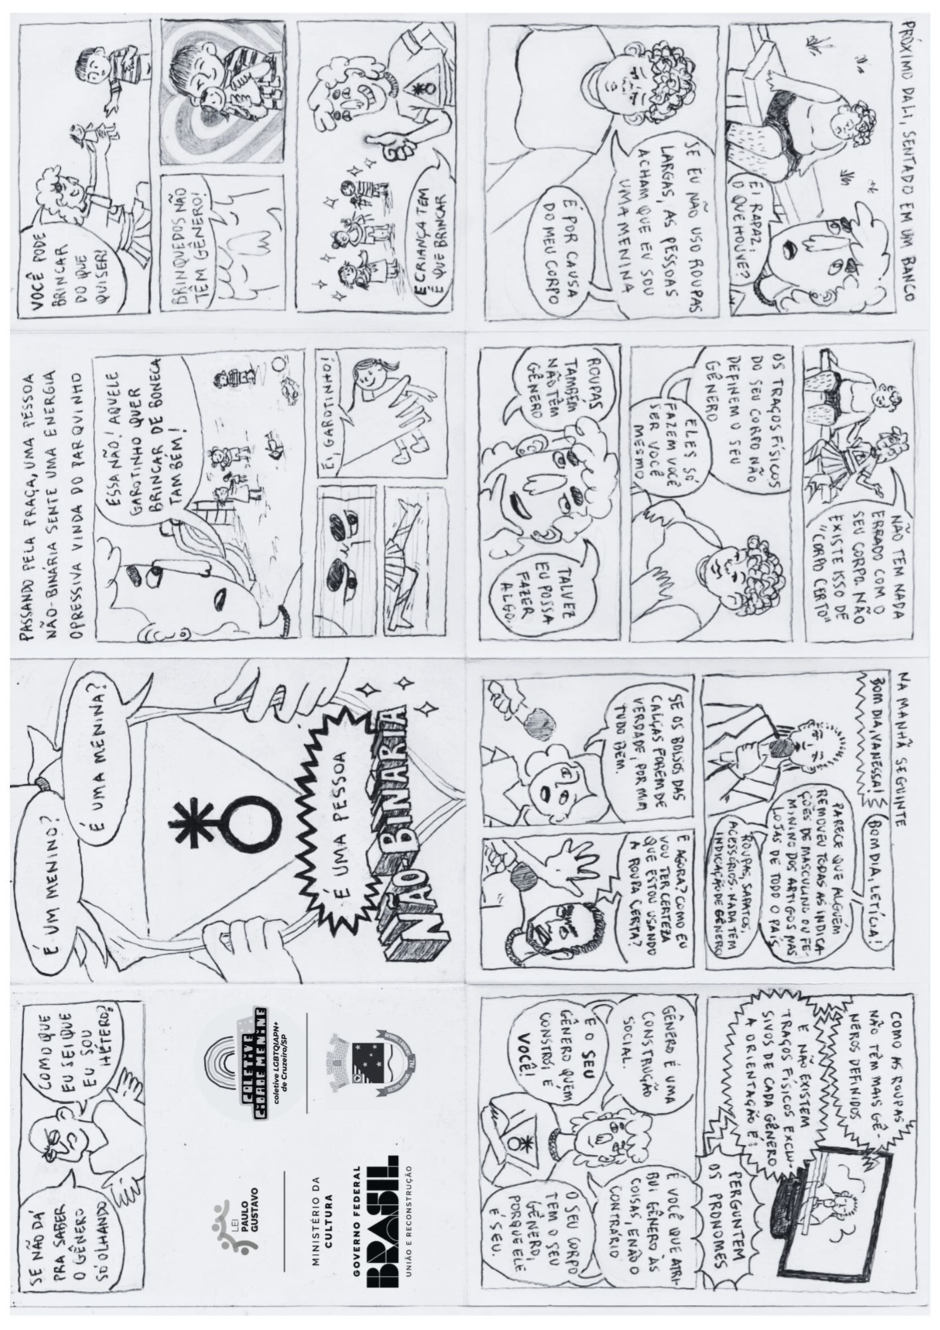 É UM MENINO?
É UMA MENINA?
É UMA PESSOA
NÃO-BINÁRIA
PASSANDO PELA PRAÇA, UMA PESSOA
NÃO-BINÁRIA SENTE UMA ENERGIA
OPRESSIVA VINDA DO PARQUINHO
ESSA NÃO! AQUELE
GAROTINHO QUER
BRINCAR DE BONECA
TAMBÉM!
EI, GAROTINHO!
VOCÊ PODE
BRINCAR
DO QUE
QUISER!
BRINQUEDOS NÃO
TÊM GÊNERO!
E CRIANÇA TEM
É QUE BRINCAR
PRÓXIMO DALI, SENTADO EM UM BANCO
EI RAPAZ,
O QUE HOUVE?
SE EU NÃO USO ROUPAS
LARGAS, AS PESSOAS
ACHAM QUE EU SOU
UMA MENINA
É POR CAUSA
DO MEU CORPO
NÃO TEM NADA
ERRADO COM O
SEU CORPO. NÃO
EXISTE ISSO DE
"CORPO CERTO"
OS TRAÇOS FÍSICOS
DO SEU CORPO NÃO
DEFINEM O SEU
GÊNERO
ELES SÓ
FAZEM VOCÊ
SER VOCÊ
MESMO
ROUPAS
TAMBÉM
NÃO TÊM
GÊNERO
TALVEZ
EU POSSA
FAZER
ALGO.
NA MANHÃ SEGUINTE
BOM DIA, VANESSA!
BOM DIA, LETÍCIA!
PARECE QUE ALGUÉM
REMOVEU TODAS AS INDICA-
ÇÕES DE MASCULINO OU FE-
MININO DOS ARTIGOS NAS
LOJAS DE TODO O PAÍS
ROUPAS, SAPATOS,
ACESSÓRIOS. NADA TÊM
INDICAÇÃO DE GÊNERO
SE OS BOLSOS DAS
CALÇAS FOREM DE
VERDADE, POR MIM
TUDO BEM.
E AGORA? COMO EU
VOU TER CERTEZA
QUE ESTOU USANDO
A ROUPA CERTA?
COMO AS ROUPAS
NÃO TÊM MAIS GÊ-
NEROS DEFINIDOS
E NÃO EXISTEM
TRAÇOS FÍSICOS EXCLU-
SIVOS DE CADA GÊNERO
A ORIENTAÇÃO É:
PERGUNTEM
OS PRONOMES
GÊNERO É UMA
CONSTRUÇÃO
SOCIAL.
E O SEU
GÊNERO QUEM
CONSTRÓI É
VOCÊ!
É VOCÊ QUE ATRI-
BUI GÊNERO ÀS
COISAS, E NÃO O
CONTRÁRIO
O SEU CORPO
TEM O SEU
GÊNERO,
PORQUE ELE
É SEU.
SE NÃO DÁ
PRA SABER
O GÊNERO
SÓ OLHANDO
COMO QUE
EU SEI QUE
EU SOU
HÉTERO?
LEI
PAULO
GUSTAVO
COLETIVE
CIDADE MENINE
coletive LGBTQIAPN+
de Cruzeiro/SP
MINISTÉRIO DA
CULTURA
GOVERNO FEDERAL
BRASIL
UNIÃO E RECONSTRUÇÃO